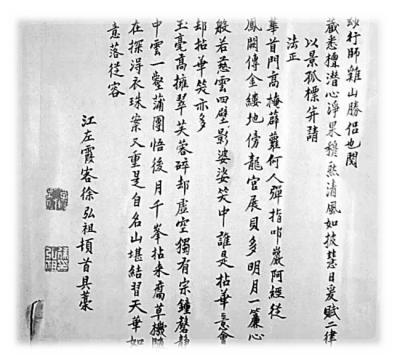 妙行師雞山勝侶也閱
藏悉檀潛心淨果穆然清風如披慧日爰賦二律
以景孤標幷請
法正
華首門高掩薜蘿何人彈指叩巖阿經從
鳳闕傳金縷地傍龍宮展貝多明月一簾心
般若慈雲四壁影婆娑笑中誰是拈華意會
却拈華笑亦多
玉毫高擁翠芙蓉碎却虛空獨有宗鐘磬靜
中雲一壑蒲團悟後月千峯拈來腐草機隨
在探得衣珠案又重是自名山堪結習天華如
意落從容
江左霞客徐弘祖頓首具藁